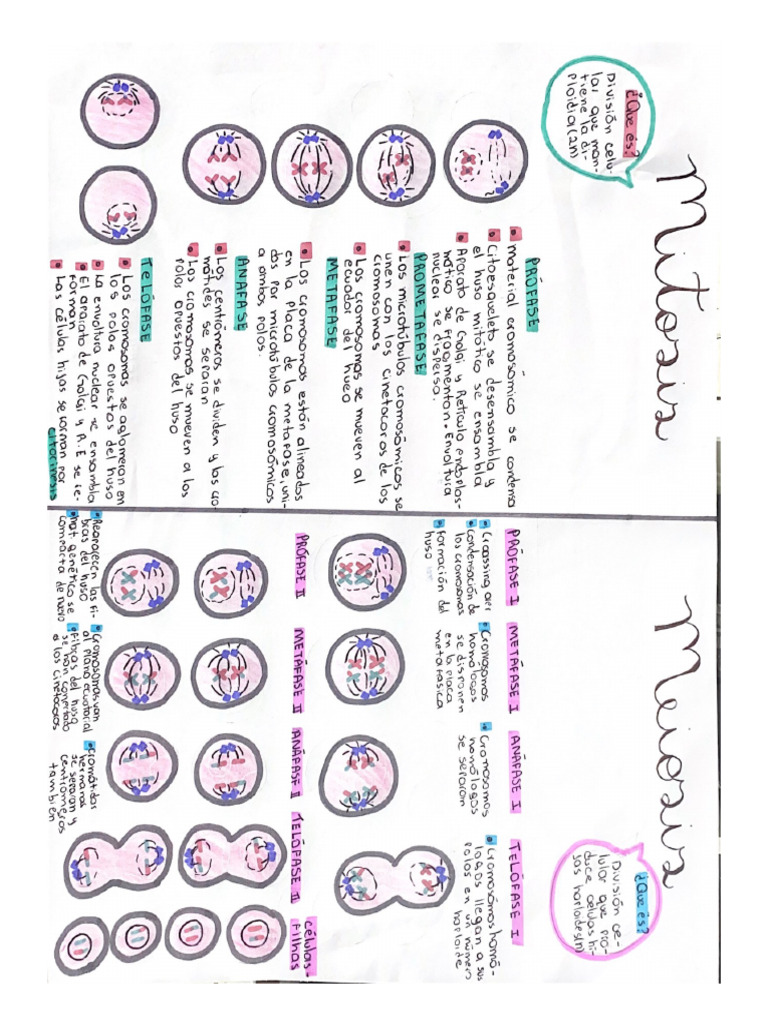 Mitosis
¿Que és?
División celu-
lar que man-
tiene la di-
ploidia (2n)
PRÓFASE
Material cromosómico se condensa
Citoesqueleto se desensambla y
el huso mitótico se ensambla
Aparato de Golgi y Retículo endoplas-
mático se fragmentan. Envoltura
nuclear se dispersa.
PROMETAFASE
Los microtúbulos cromosómicos se
unen con los cinetocoros de los
cromosomas
Los cromosomas se mueven al
ecuador del huso
METAFASE
Los cromosomas están alineados
en la placa de la metafase, uni-
dos por microtúbulos cromosómicos
a ambos polos.
ANAFASE
Los centrómeros se dividen y las cro-
mátides se separan
Los cromosomas se mueven a los
polos opuestos del huso
TELÓFASE
Los cromosomas se aglomeran en
los polos opuestos del huso
La envoltura nuclear se ensambla
El aparato de Golgi y R.E se re-
forman
Las células hijas se forman por
citocinesis
Meiosis
¿Que és?
División ce-
lular que pro-
duce células hi-
jas haploides(n)
PRÓFASE I
Crossing over
condensación de
los cromosomas
Formación del
huso
METÁFASE I
Cromosomas
homólogos
se disponen
en la placa
metafasica
ANÁFASE I
Cromosomas
homólogos
se separan
TELÓFASE I
Cromosomas homó-
logos llegan a sus
polos en un número
haploide
PRÓFASE II
METÁFASE II
ANÁFASE II
TELÓFASE II
Células-
Filhas
Reaparecen las fi-
bras del huso
Mat. genético se
compacta de nuevo
Cromosomas van
al plano ecuatorial
Fibras del huso
se han conectado
a los cinetocoros
Cromátidas
hermanas
se separan y
centrómeros
también